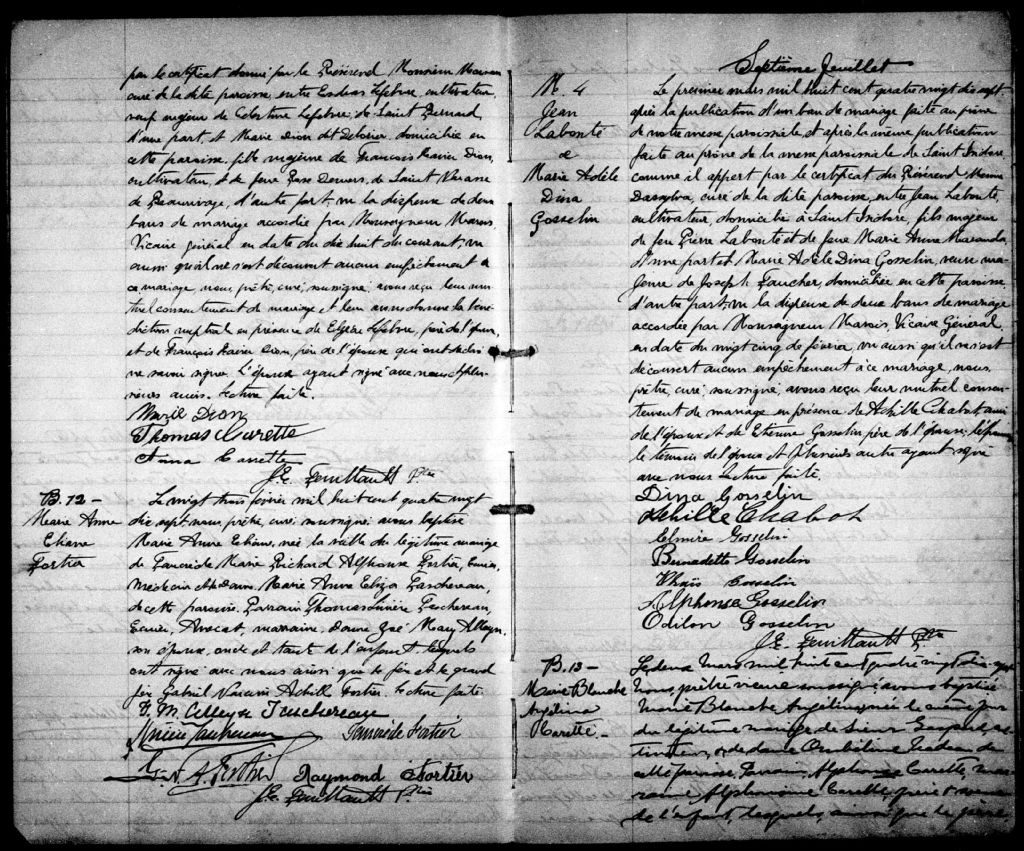 par le certificat donné par le Révérend Monsieur
curé de la dite paroisse, entre Lefebvre, cultivateur,
veuf majeur de Célestine Lefebvre, de Saint Bernard
d'une part, et Marie Dion dit domiciliée en
cette paroisse, fille mineure de François Xavier Dion,
cultivateur, et de feue Rose Demers, de Saint Narcisse
de Beaurivage, d'autre part, vu la dispense de deux
bans de mariage accordée par Monseigneur Marois
Vicaire général en date du dix huit du courant, vu
aussi qu'il ne s'est découvert aucun empêchement à
ce mariage, nous, prêtre, curé, soussigné, avons reçu leur mu-
tuel consentement de mariage et leur avons donné la béné-
diction nuptiale en présence de Elzéar Lefebvre, père de l'époux,
et de François Xavier Dion, père de l'épouse qui ont déclaré
ne savoir signer. L'épouse ayant signé avec nous et plu-
sieurs amis. Lecture faite.
Marie Dion
Thomas Carette
Anna Carrette
J. E. Feuiltault Ptre
B. 12 -
Marie Anne
Eliane
Fortier
Le vingt trois février mil huit cent quatre vingt
dix sept, nous, prêtre, curé, soussigné, avons baptisé
Marie Anne Eliane, née la veille du légitime mariage
de Tancrède Marie Richard Alphonse Fortier, Ecuier,
Médecin et de Dame Marie Anne Eliza Taschereau,
de cette paroisse. Parrain Thomas Linière Taschereau,
Ecuier, Avocat, marraine, Dame Zoé Mary Alleyn,
son épouse, oncle et tante de l'enfant lesquels
ont signé avec nous ainsi que le père et le grand
père Gabriel Vinceslas Achille Fortier. Lecture faite.
Z. M. Alleyn Taschereau
Linière Taschereau Tancrède Fortier
G. V. A. Fortier Raymond Fortier
J. E. Feuiltault Ptre
Septième feuillet
M. 4
Jean
Labonté
&
Marie Adèle
Dina
Gosselin
Le premier mars mil huit cent quatre vingt dix sept
après la publication d'un ban de mariage faite au prône
de notre messe paroissiale, et après la même publication
faite au prône de la messe paroissiale de Saint Isidore
comme il appert par le certificat du Révérend Monsieur
Dasylva, curé de la dite paroisse, entre Jean Labonté,
cultivateur, domicilié à Saint Isidore, fils majeur
de feu Pierre Labonté et de feue Marie Anne
d'une part et Marie Adèle Dina Gosselin, veuve ma-
jeure de Joseph Faucher, domiciliée en cette paroisse
d'autre part, vu la dispense de deux bans de mariage
accordée par Monseigneur Marois, Vicaire Général,
en date du vingt cinq de février, vu aussi qu'il ne s'est
découvert aucun empêchement à ce mariage, nous,
prêtre, curé, soussigné, avons reçu leur mutuel consen-
tement de mariage en présence de Achille Chabot, ami
de l'époux et de Etienne Gosselin père de l'épouse; l'épouse
le témoin de l'époux et plusieurs autres ayant signé
avec nous. Lecture faite.
Dina Gosselin
Achille Chabot
Elmire Gosselin
Bernadette Gosselin
Thaïs Gosselin
Alphonse Gosselin
Odilon Gosselin
J. E. Feuiltault Ptre
B. 13 -
Marie Blanche
Angélina
Carette
Le deux Mars mil huit cent quatre vingt dix-sept
Nous, prêtre vicaire soussigné avons baptisé
Marie Blanche Angélina, née le même jour
du légitime mariage de Carette, cul-
tivateur, et de dame Nadeau de
cette paroisse, Parrain, Alphonse Carette, mar-
raine Alphonsine Carette, frère et soeur
de l'enfant, lesquels, ainsi que le père,